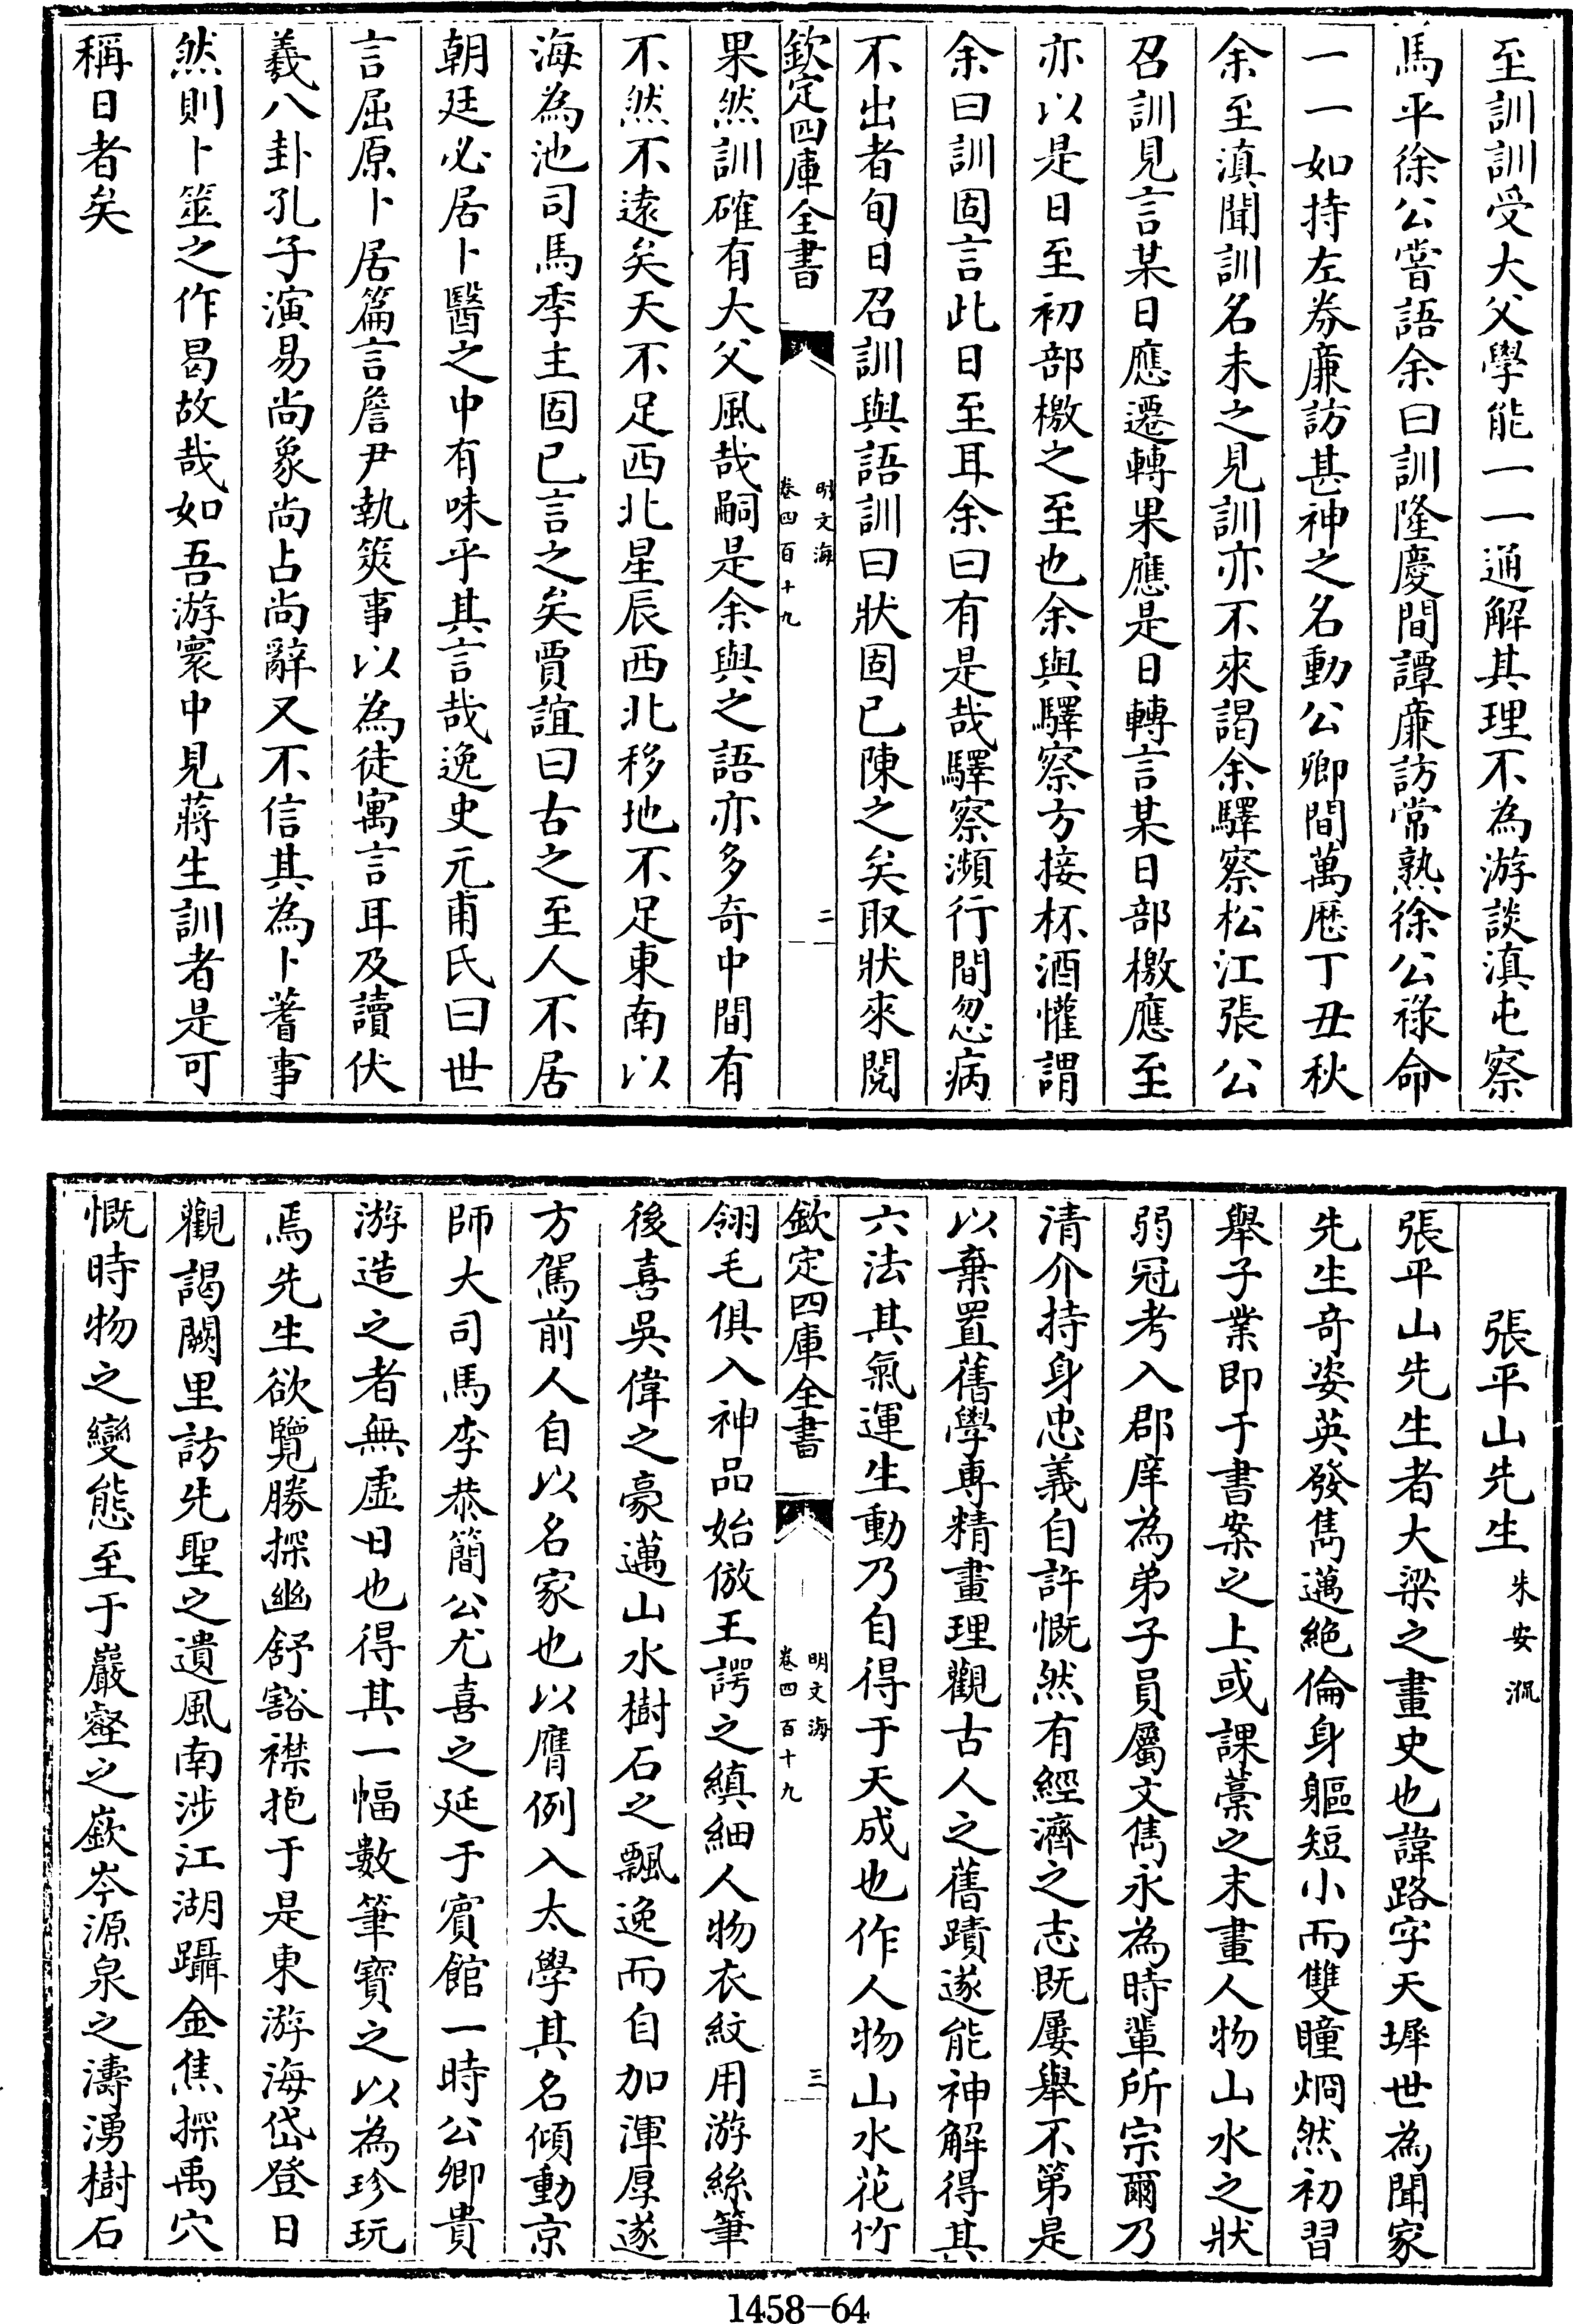 至訓訓受大父學能一一通解其理不為游談滇屯察
馬平徐公嘗語余曰訓隆慶間譚亷訪常熟徐公祿命
一一如持左券亷訪甚神之名動公卿間萬厯丁丑秋
余至滇聞訓名未之見訓亦不來謁余驛察松江張公
召訓見言某日應遷轉果應是日轉言某日部檄應至
亦以是日至初部檄之至也余與驛察方接杯酒懽謂
余曰訓固言此日至耳余曰有是哉驛察瀕行間忽病
不出者旬日召訓與語訓曰狀固已陳之矣取狀來閱
欽定四庫全書
明文海
卷四百十九
二
果然訓確有大父風哉嗣是余與之語亦多奇中間有
不然不逺矣天不足西北星辰西北移地不足東南以
海為池司馬季主固已言之矣賈誼曰古之至人不居
朝廷必居卜醫之中有味乎其言哉逸史元甫氏曰世
言屈原卜居篇言詹尹執筴事以為徒寓言耳及讀伏
羲八卦孔子演易尚象尚占尚辭又不信其為卜蓍事
然則卜筮之作曷故哉如吾游寰中見蔣生訓者是可
稱日者矣
張平山先生 朱安㳦
張平山先生者大梁之畫史也諱路字天墀世為聞家
先生奇姿英發雋邁絶倫身軀短小而雙瞳烱然初習
舉子業即于書案之上或課藁之末畫人物山水之狀
弱冠考入郡庠為弟子員屬文雋永為時輩所宗爾乃
清介持身忠義自許慨然有經濟之志既屢舉不第是
以棄置舊學專精畫理觀古人之舊蹟遂能神解得其
六法其氣運生動乃自得于天成也作人物山水花竹
欽定四庫全書
明文海
卷四百十九
三
翎毛俱入神品始倣王諤之縝細人物衣紋用游絲筆
後喜吳偉之豪邁山水樹石之飄逸而自加渾厚遂
方駕前人自以名家也以膺例入太學其名傾動京
師大司馬李恭簡公尤喜之延于賓館一時公卿貴
游造之者無虚日也得其一幅數筆寳之以為珍玩
焉先生欲覽勝探幽舒豁襟抱于是東游海岱登日
觀謁闕里訪先聖之遺風南涉江湖躡金焦探禹穴
慨時物之變態至于巖壑之嶔岑源泉之濤湧樹石
1458-64